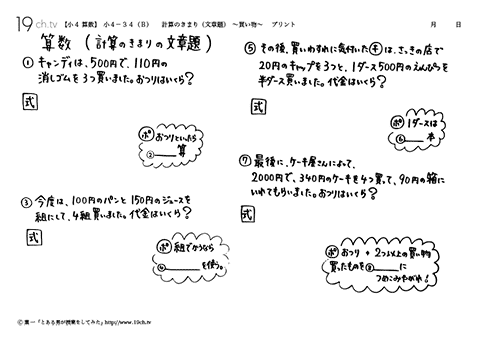 19ch.tv 【小4 算数】 小4－34（B） 計算のきまり（文章題） ～買い物～ プリント 月 日
算数（計算のきまりの文章題）
① キャンディは、500円で、110円の
消しゴムを3つ買いました。おつりはいくら？
式
ポ おつりといったら
② 算
③ 今度は、100円のパンと150円のジュースを
組にして、4組買いました。代金はいくら？
式
ポ 組でかうなら
④ を使う。
⑤ その後、買いわすれに気付いた㋖は、さっきの店で
20円のキャップを3つと、1ダース500円のえんぴつを
半ダース買いました。代金はいくら？
式
ポ 1ダースは
⑥ 本
⑦ 最後に、ケーキ屋さんによって、
2000円で、340円のケーキを4つ買って、90円の箱に
いれてもらいました。おつりはいくら？
式
ポ おつり + 2つ以上の買い物
買ったものを⑧ に
つめこみやがれ！
Ⓒ 葉一「とある男が授業をしてみた」http://www.19ch.tv